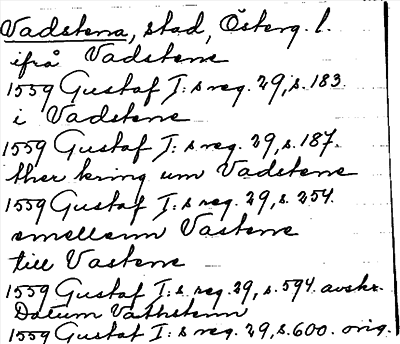 Vadstena, stad, Österg. l.
ifrå Vadstene
1559 Gustaf I:s reg. 29, s. 183.
i Vadstene
1559 Gustaf I:s reg. 29, s. 187.
ther kring um Vadstene
1559 Gustaf I:s reg. 29, s. 254.
emellem Vastene
till Vastene
1559 Gustaf I:s reg. 29, s. 594. avskr.
Datum Vathstenn
1559 Gustaf I:s reg. 29, s. 600. orig.